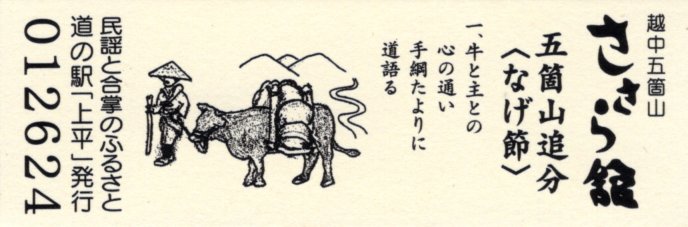 越中五箇山
ささら館
五箇山追分
〈なげ節〉
一、牛と主との
心の通い
手綱たよりに
道語る
民謡と合掌のふるさと
道の駅「上平」発行
012624